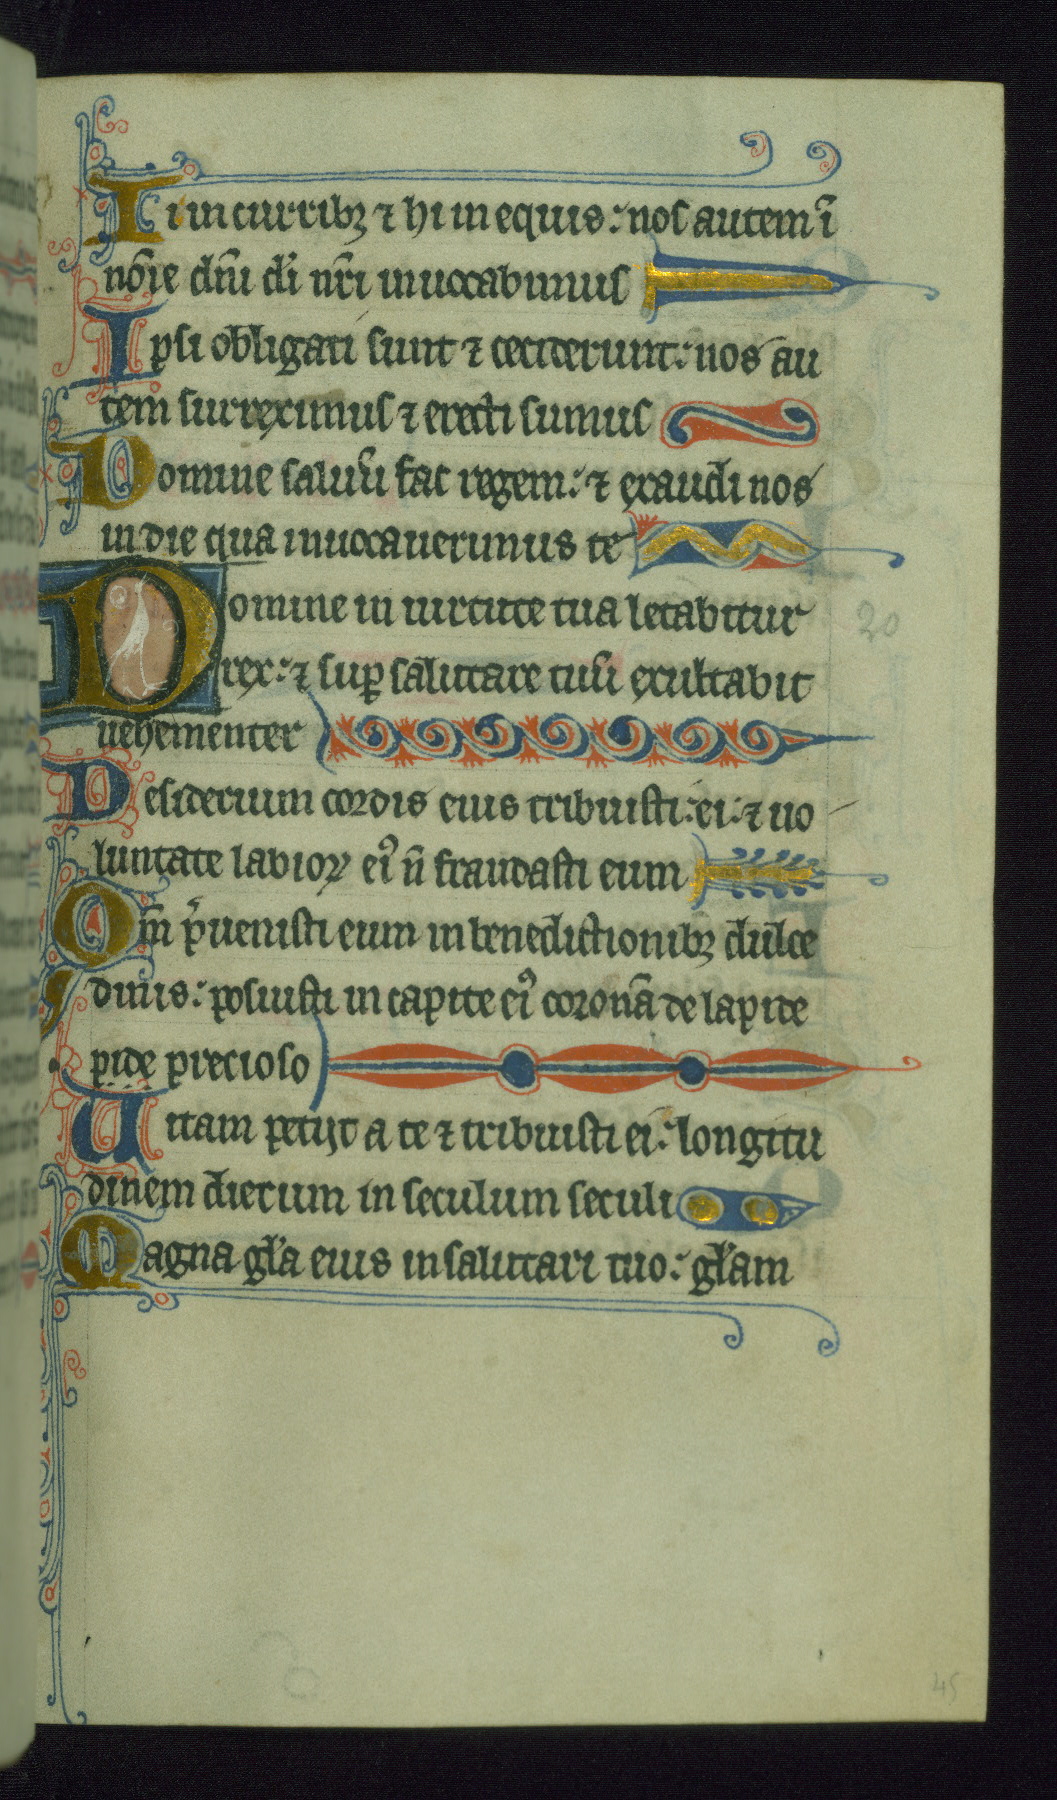 Ii in curribꝫ ⁊ hi in equis: nos autem ī
nōie dn̄i dī nr̄i inuocabimus
Ipsi obligati sunt ⁊ ceciderunt: nos au
tem surreximus ⁊ erecti sumus
Domine saluū fac regem: ⁊ exaudi nos
in die qua inuocauerimus te
Domine in uirtute tua letabitur
20
rex: ⁊ suꝑ salutare tuū exultabit
uehementer
Desiderium cordis eius tribuisti ei: ⁊ uo
luntate labioꝝ eiꝰ n̄ fraudasti eum
Qm̄ p̄uenisti eum in benedictionibꝫ dulce
dinis: posuisti in capite eiꝰ coronā de lapide
pide precioso
Uitam petijt a te ⁊ tribuisti ei: longitu
dinem dierum in seculum seculi
Magna gl̄a eius in salutari tuo: gl̄am
45